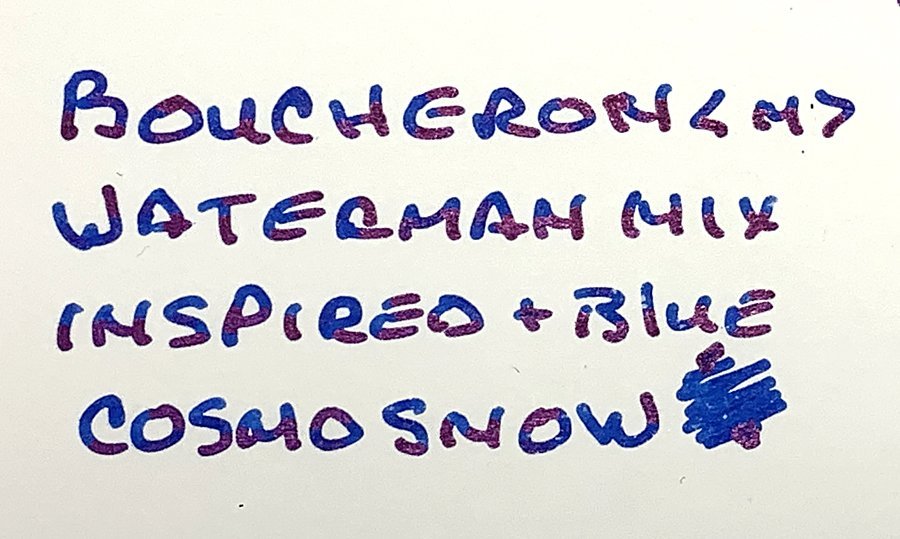 BOUCHERON <M>
WATERMAN MIX
INSPIRED + BLUE
COSMO SNOW